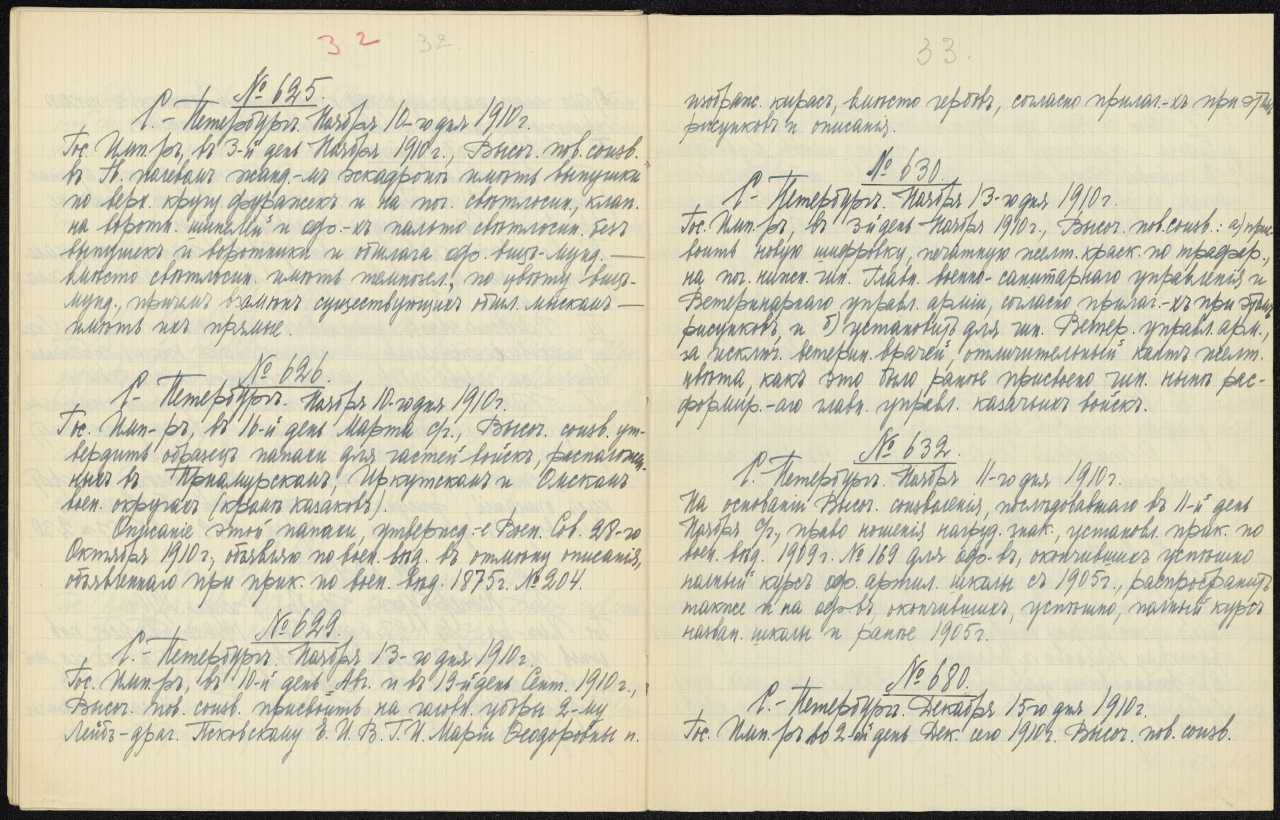 32 32.
№ 625.
С.-Петербургъ. Ноября 10-го дня 1910 г.
Гос. Имп-ръ, въ 3-й день Ноября 1910 г., Высоч. пов. соизв.
въ Гв. полевомъ жанд.-мъ эскадронѣ имѣть выпушки
по верх. кругу фуражекъ и на пог. свѣтлосин., клап.
на воротн. шинелей и оф.-хъ пальто свѣтлосин. безъ
выпушекъ и воротники и обшлага оф. вицъ-мунд. —
вмѣсто свѣтлосин. имѣть темнозел., по цвѣту вицъ-
мунд., причемъ взамѣнъ существующихъ обшл. мыскомъ —
имѣть ихъ прямые.
№ 626.
С.-Петербургъ. Ноября 10-го дня 1910 г.
Гос. Имп-ръ, въ 16-й день Марта с/г., Высоч. соизв. ут-
вердить образецъ папахи для частей войскъ, расположен-
ныхъ въ Приамурскомъ, Иркутскомъ и Омскомъ
воен. округахъ (кромѣ казаковъ).
Описаніе этой папахи, утвержд-е Воен. Сов. 28-го
Октября 1910 г., объявляю по воен. вѣд. въ отмѣну описанія,
объявленнаго при прик. по воен. вѣд. 1875 г. № 204.
№ 629.
С.-Петербургъ. Ноября 13-го дня 1910 г.
Гос. Имп-ръ, въ 10-й день Авг. и въ 19-й день Сент. 1910 г.,
Высоч. пов. соизв. присвоить на головн. уборы 2-му
Лейбъ-драг. Псковскому Е. И. В. Г. И. Маріи Ѳеодоровны п.
33.
изображ. кирасъ, вмѣсто гербовъ, согласно прилаг.-хъ при этомъ
рисунковъ и описанія.
№ 630.
С.-Петербургъ. Ноября 13-го дня 1910 г.
Гос. Имп-ръ, въ 3-й день Ноября 1910 г., Высоч. пов. соизв.: а) прис-
воить новую шифровку, печатную желт. краск. по трафар.,
на пог. нижн. чин. Главн. военно-санитарнаго управленія и
Ветеринарнаго управл. арміи, согласно прилаг.-хъ при этомъ
рисунковъ, и б) установить для чин. Ветер. управл. арм.,
за исключ. ветерин. врачей, отличительный кантъ желт.
цвѣта, какъ это было ранѣе присвоено чин. нынѣ рас-
формир.-аго главн. управл. казачьихъ войскъ.
№ 632.
С.-Петербургъ. Ноября 11-го дня 1910 г.
На основаніи Высоч. соизволенія, послѣдовавшаго въ 11-й день
Ноября с/г., право ношенія нагруд. знак., установл. прик. по
воен. вѣд. 1909 г. № 169 для оф.-въ, окончившихъ успѣшно
полный курсъ оф. артил. школы съ 1905 г., распространить
также и на оф-въ, окончившихъ, успѣшно, полный курсъ
назван. школы и ранѣе 1905 г.
№ 680.
С.-Петербургъ. Декабря 15-го дня 1910 г.
Гос. Имп-ръ во 2-ой день Дек. сего 1910 г. Высоч. пов. соизв.